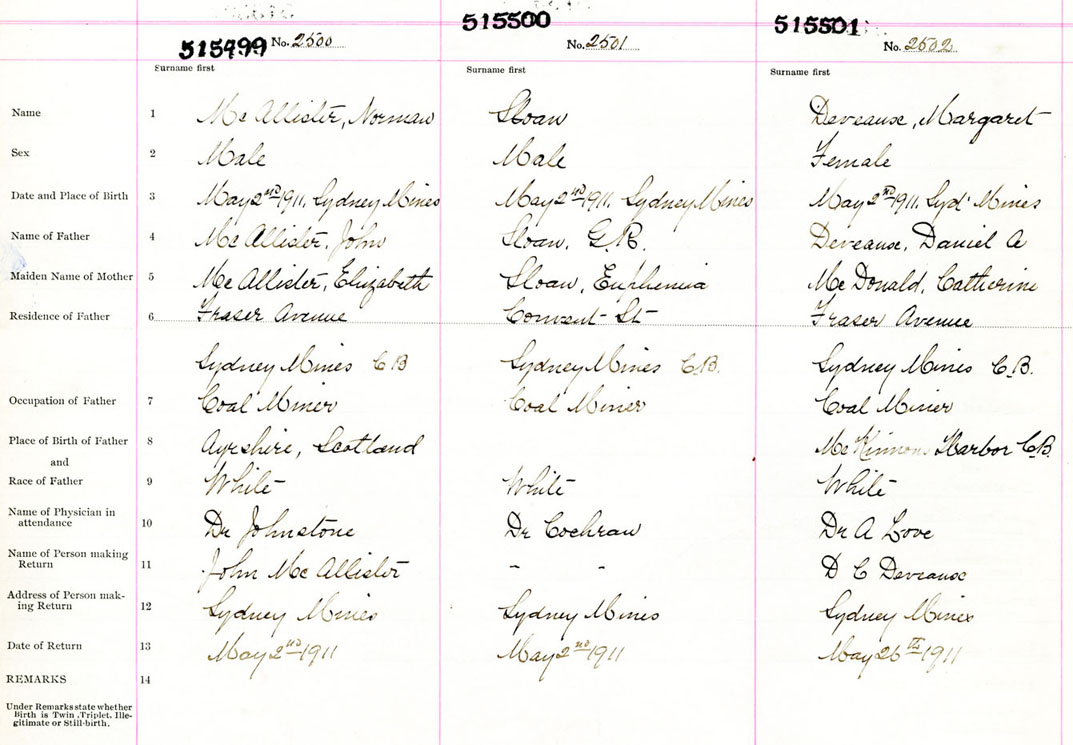 515499 No. 2500
515500
No. 2501
515501
No. 2502
Surname first Surname first Surname first
Name 1 Mc Allister, Norman Sloan Deveause, Margaret
Sex 2 Male Male Female
Date and Place of Birth 3 May 2nd 1911, Sydney Mines May 2nd 1911, Sydney Mines May 2nd 1911, Syd' Mines
Name of Father 4 Mc Allister, John Sloan, G.R. Deveause, Daniel A
Maiden Name of Mother 5 Mc Allister, Elizabeth Sloan, Euphemia Mc Donald, Catherine
Residence of Father 6 Fraser Avenue Convent St Fraser Avenue
Sydney Mines C B Sydney Mines C.B. Sydney Mines C.B.
Occupation of Father 7 Coal Miner Coal Miner Coal Miner
Place of Birth of Father 8 Ayrshire, Scotland Mc Kinnon Harbor C.B.
and
Race of Father 9 White White White
Name of Physician in
attendance 10 Dr Johnstone Dr Cochran Dr A Love
Name of Person making
Return 11 John Mc Allister - - D C Deveause
Address of Person mak-
ing Return 12 Sydney Mines Sydney Mines Sydney Mines
Date of Return 13 May 2nd 1911 May 2nd 1911 May 26th 1911
REMARKS 14
Under Remarks state whether
Birth is Twin, Triplet, Ille-
gitimate or Still-birth.